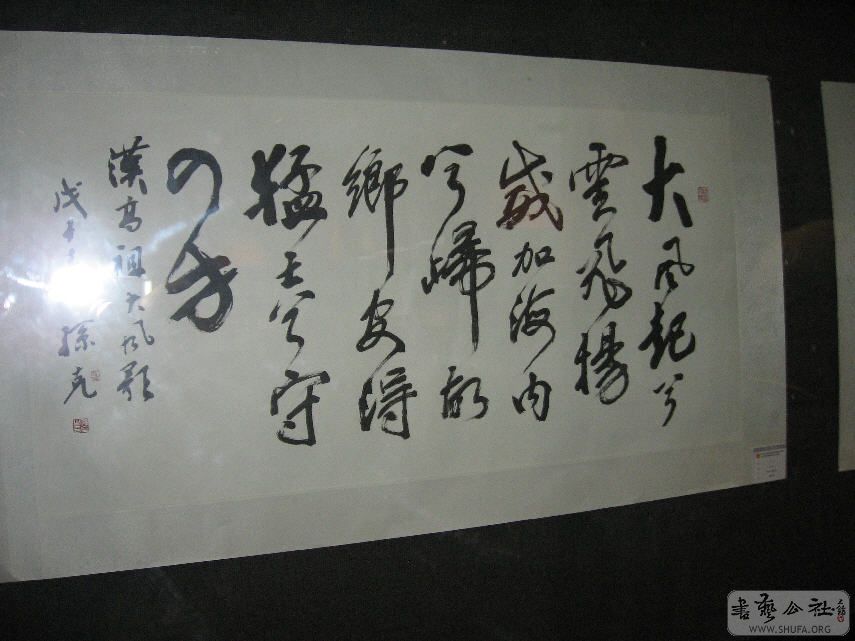 大風起兮
雲飛揚
威加海内
兮歸故
鄉安得
猛士兮守
四方
漢高祖大风歌
戊子 孫克
書藝公社
WWW.SHUFA.ORG